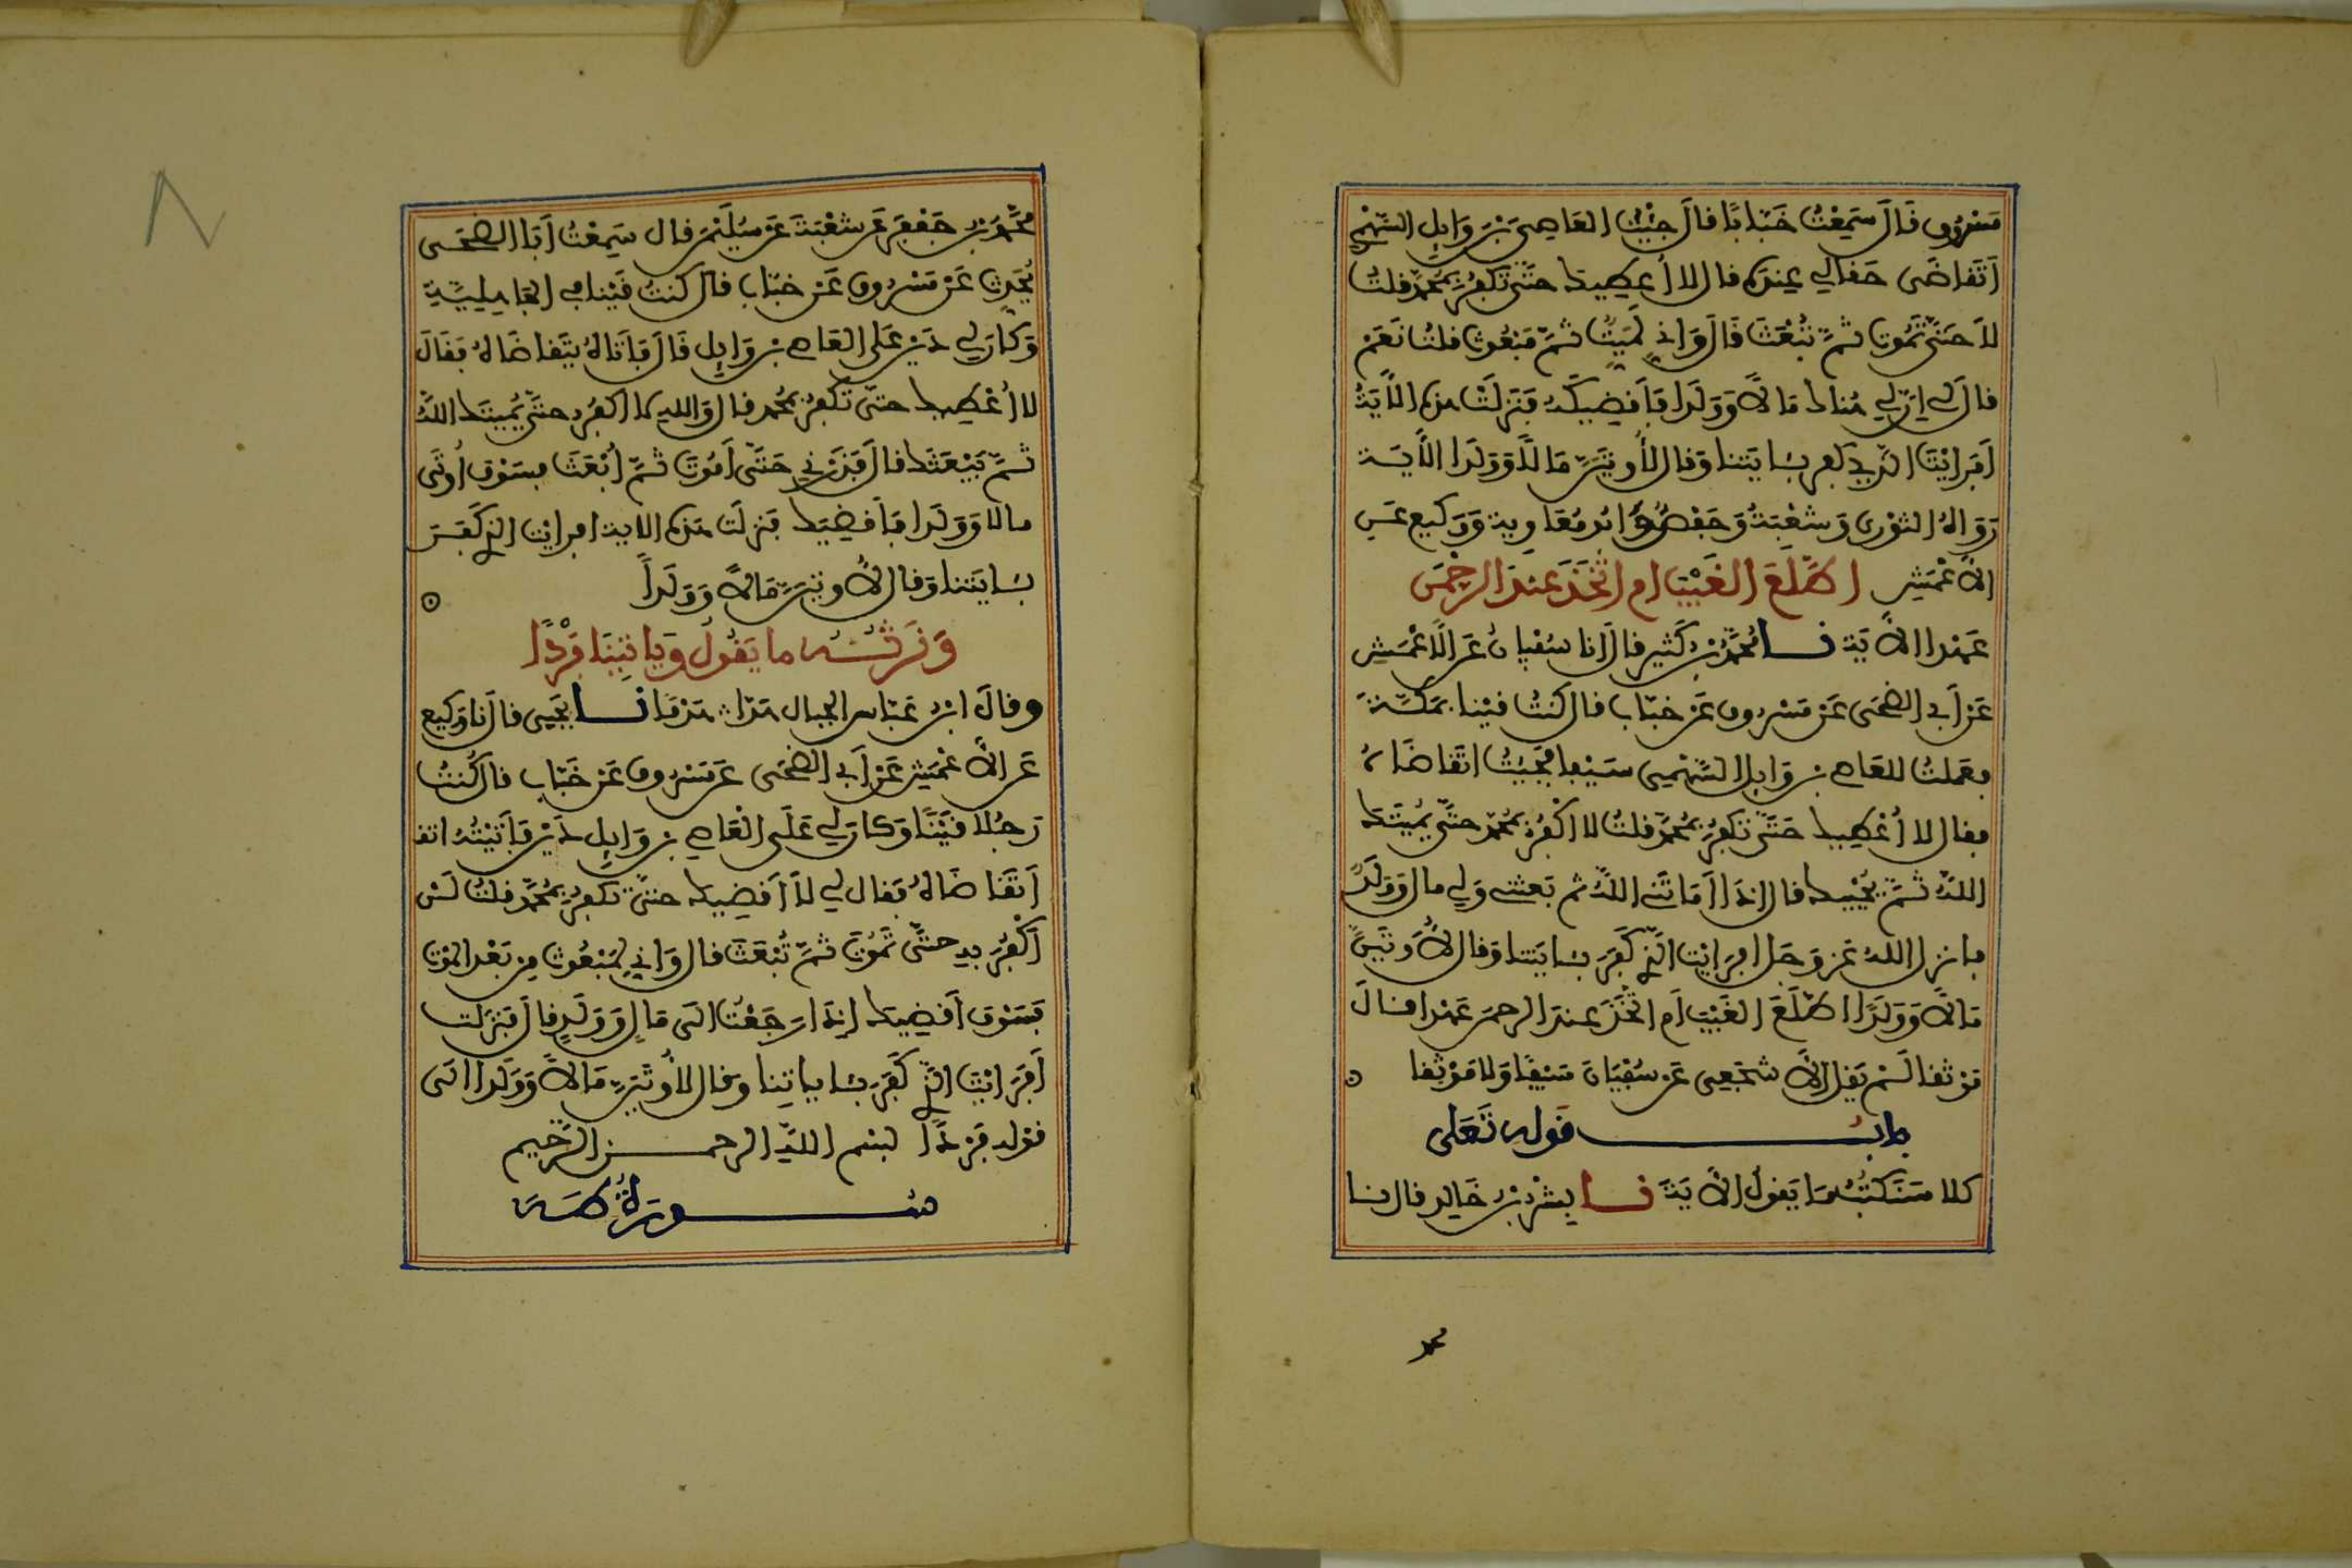 مَسْرُوقٍ قَالَ سَمِعْتُ خَبَّابًا قالَ جِئْتُ العَاصِيَ بْنَ وَايِلٍ السَّهْمِيَّ
أَتَقاضَى حَقًا لِي عِندَه قال لا أُعطِيكَ حَتَّى تَكفُرَ بِمُحَمَّدٍ فقلتُ
لاَ حَتَّى تَمُوتَ ثُمَّ تُبْعَثَ قَالَ وَإِنِّي لَمَيِّتٌ ثُمَّ مَبْعُوثٌ قلتُ نَعَمْ
قالَ لِي إنَّ لِي هُناكَ مَالاً وَوَلَدًا فَأَقْضِيكَهُ فَنَزَلَتْ هذه الآيَةُ
أَفَرَايْتَ الَّذِي كَفَرَ بِئَايَتنا وَقال لأُوتَيَنَّ مَالاً وَوَلَدًا الآيَـة
رَوَاهُ الثوْرِي وَشعْبَةُ وَحَفْصٌ وَأبُو مُعَاوِيةَ وَوَكيع عَنِ
الاَعْمَشِ اطَّلَعَ الغَيْبَ أم اتَّخَذَ عِندَ الرحْمَنِ
عَهْدًا الاَيَة نــا مُحَمَّدُ بْنُ كَثِيرٍ قال أنا سُفْيانُ عَنِ الاَعْمَشِ
عَنْ أَبِي الضُّحَى عَنْ مَسْروقٍ عَنْ خبّاب قال كنتُ قيْنا بمَكّـةَ
فعَملتُ للعَاصِي بْنِ وَايِل السَّهْمِيِّ سَيْفا فجِئتُ اتَقاضَاهُ
فقال لا أُعْطِيكَ حَتَّى تَكفُرَ بمُحَمَّدٍ قلتُ لا اكْفُرُ بمُحَمَّدٍ حتَّى يُمِيتَكَ
اللهُ ثُمَّ يُحْيِيكَ قال إذَا أَمَاتَنِي اللهُ ثم بَعثنِي وَلِي مال وَوَلَدٌ
فانزل اللهُ عَز وَجَل افرَايْت الَّذِي كَفَرَ بِئايَتنا وَقال لأُوتَيَنَّ
مَالاً وَوَلَدًا اطَّلَعَ الغَيْبَ أَم اتَّخَذَ عِندَ الرحمَنِ عَهْدا قـالَ
مَوْثقا لَمْ يَقل الاَشْجَعِي عَنْ سُفيَانَ سَيْفًا وَلا مَوْثِقا ⊙
بابُ قولِهِ تَعَلى
كلا سَنَكتُبُ مَا يَقولُ الاَيَةَ نــا بِشْرُ بْنُ خَالِدٍ قال نـا
محمد
مُحَمَّدُ بْنُ جَعْفَرٍ عَنْ شعْبَةَ عَنْ سُلَيْمَنَ قال سَمِعْتُ أَبَا الضحَـى
يُحَدِّثُ عَنْ مَسْرُوقٍ عَنْ خبَّابٍ قال كنتُ قَيْنا فِي الجَاهِلِيَّةِ
وَكانَ لِي دَيْن عَلَى العَاصِي بْنِ وَايِلٍ قالَ فأَتَاهُ يَتَقاضَاهُ فَقَالَ
لا أُعْطِيكَ حتَّى تَكفُرَ بمُحَمدٍ قال وَاللهِ لا اكفُرُ حتَّى يُمِيتَكَ اللهُ
ثُمَّ يَبْعَثَكَ قال فَذَرْنِي حَتَّى أَمُوتَ ثُمَّ أُبْعَثَ فسَوْفَ أُوتَى
مالا وَوَلَدا فأَقْضِيكَ فَنزلَت هَذه الاية افرايْتَ الذِي كَفَـرَ
بِئايَتنا وَقال لأُوتَيَنَّ مَالاً وَوَلَداً ⊙
وَنَرِثُـهُ ما يَقُولُ وَيَاتِينَا فَرْدًا
وقالَ ابْنُ عَبّاسٍ الجبال هَدّا هَدْمًا نــا يَحْيى قال نا وَكِيع
عَنِ الاَعْمَشِ عَنْ أَبِي الضُّحَى عَنْ مَسْرُوقٍ عَنْ خَبَّابٍ قال كُنتُ
رَجُلا قَيْنًا وَكانَ لِي عَلَى الْعَاصِي بْنِ وَايِلٍ دَيْن فَأَتَيْتُهُ اتق
اَتَقَاضَاهُ فقال لِي لاَ أَقضِيكَ حتى تكفُرَ بمُحَمَّدٍ قلتُ لَنْ
أَكْفُرَ بِهِ حتَّى تَمُوتَ ثُمَّ تُبْعَثَ قال وَإني لَمَبْعُوثٌ مِن بَعْدِ الموْتِ
فَسَوْفَ أَقضِيكَ إِذَا رَجَعْتُ الَى مَالٍ وَوَلَدٍ قالَ فَنَزَلت
أَفَرَايْتَ الذِي كَفَرَ بِئاياتِنا وَقال لأُوتَيَنَّ مَالاً وَوَلَدا الَى
قوْلِه فَرْدًا بسْم اللهِ الرحمـن الرَّحِيم
سُـورَةُ طَهَ